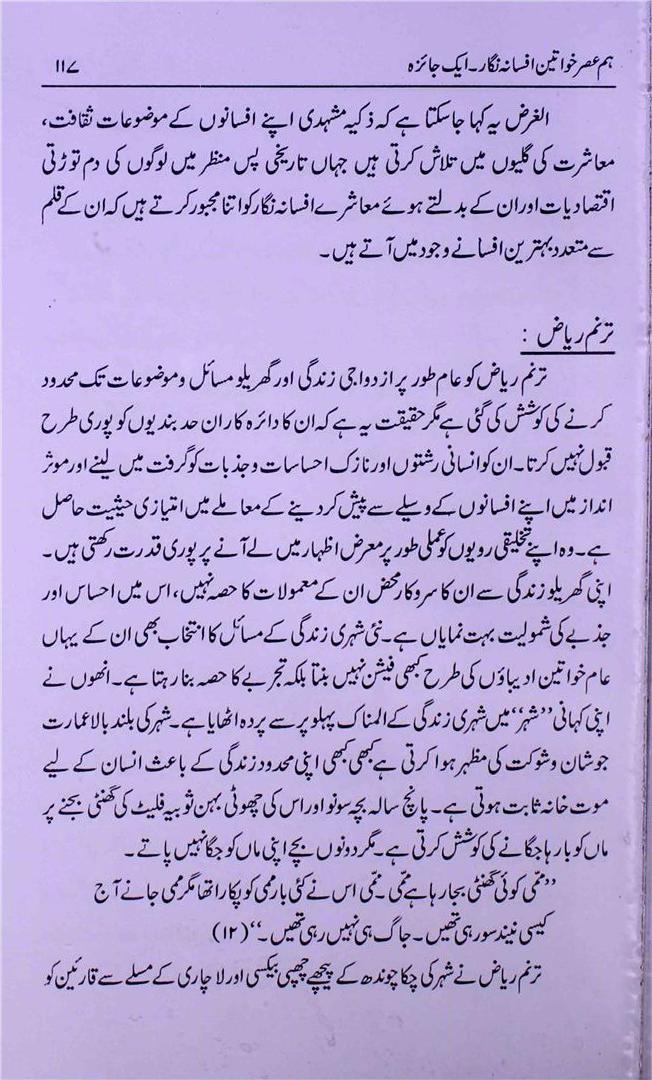 ہم عصر خواتین افسانہ نگار۔ ایک جائزہ ۱۱۷
الغرض یہ کہا جاسکتا ہے کہ ذکیہ مشہدی اپنے افسانوں کے موضوعات ثقافت،
معاشرت کی گلیوں میں تلاش کرتی ہیں جہاں تاریخی پس منظر میں لوگوں کی دم توڑتی
اقتصادیات اور ان کے بدلتے ہوئے معاشرے افسانہ نگار کو اتنا مجبور کرتے ہیں کہ ان کے قلم
سے متعدد بہترین افسانے وجود میں آتے ہیں۔
ترنم ریاض :
ترنم ریاض کو عام طور پر ازدواجی زندگی اور گھریلو مسائل و موضوعات تک محدود
کرنے کی کوشش کی گئی ہے مگر حقیقت یہ ہے کہ ان کا دائرہ کار ان حد بندیوں کو پوری طرح
قبول نہیں کرتا۔ ان کو انسانی رشتوں اور نازک احساسات و جذبات کو گرفت میں لینے اور موثر
انداز میں اپنے افسانوں کے وسیلے سے پیش کر دینے کے معاملے میں امتیازی حیثیت حاصل
ہے۔ وہ اپنے تخلیقی رویوں کو عملی طور پر معرض اظہار میں لے آنے پر پوری قدرت رکھتی ہیں۔
اپنی گھریلو زندگی سے ان کا سروکار محض ان کے معمولات کا حصہ نہیں، اس میں احساس اور
جذبے کی شمولیت بہت نمایاں ہے۔ نئی شہری زندگی کے مسائل کا انتخاب بھی ان کے یہاں
عام خواتین ادیباؤں کی طرح کبھی فیشن نہیں بنتا بلکہ تجربے کا حصہ بنا رہتا ہے۔ انھوں نے
اپنی کہانی ’’شہر‘‘ میں شہری زندگی کے المناک پہلو پر سے پردہ اٹھایا ہے۔ شہر کی بلند بالا عمارت
جو شان و شوکت کی مظہر ہوا کرتی ہے کبھی کبھی اپنی محدود زندگی کے باعث انسان کے لیے
موت خانہ ثابت ہوتی ہے۔ پانچ سالہ بچہ سونو اور اس کی چھوٹی بہن ثوبیہ فلیٹ کی گھنٹی بجنے پر
ماں کو بارہا جگانے کی کوشش کرتی ہے۔ مگر دونوں بچے اپنی ماں کو جگا نہیں پاتے۔
’’ممّی کوئی گھنٹی بجا رہا ہے ممّی۔ ممّی اس نے کئی بار ممی کو پکارا تھا مگر ممی جانے آج
کیسی نیند سو رہی تھیں۔ جاگ ہی نہیں رہی تھیں۔‘‘ (۱۲)
ترنم ریاض نے شہر کی چکا چوندھ کے پیچھے چھپی بیکسی اور لا چاری کے مسلے سے قارئین کو